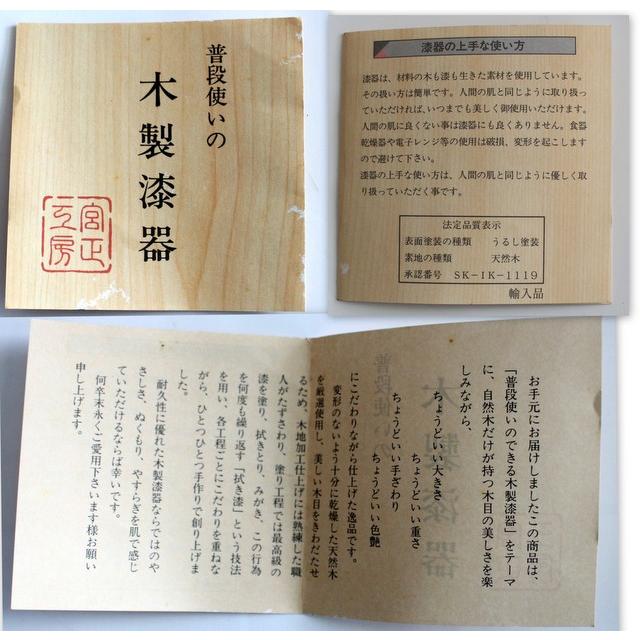 普段使いの
木製漆器
宮正工房
漆器の上手な使い方
漆器は、材料の木も漆も生きた素材を使用しています。
その扱い方は簡単です。人間の肌と同じように取り扱っ
ていただければ、いつまでも美しく御使用いただけます。
人間の肌に良くない事は漆器にも良くありません。食器
乾燥器や電子レンジ等の使用は破損、変形を起こします
ので避けて下さい。
漆器の上手な使い方は、人間の肌と同じように優しく取
り扱っていただく事です。
法定品質表示
表面塗装の種類 うるし塗装
素地の種類 天然木
承認番号 SK-IK-1119
輸入品
お手元にお届けしましたこの商品は、
「普段使いのできる木製漆器」をテーマ
に、自然木だけが持つ木目の美しさを楽
しみながら、
ちょうどいい大きさ
ちょうどいい重さ
ちょうどいい手ざわり
ちょうどいい色艶
にこだわりながら仕上げた逸品です。
変形のないよう十分に乾燥した天然木
を厳選使用し、美しい木目をきわだたせ
るため、木地加工仕上げには熟練した職
人がたずさわり、塗り工程では最高級の
漆を塗り、拭きとり、みがき、この行為
を何度も繰り返す「拭き漆」という技法
を用い、各工程ごとにこだわりを重ねな
がら、ひとつひとつ手作りで創り上げま
した。
耐久性に優れた木製漆器ならではのや
さしさ、ぬくもり、やすらぎを肌で感じ
ていただけるならば幸いです。
何卒末永くご愛用下さいます様お願い
申し上げます。